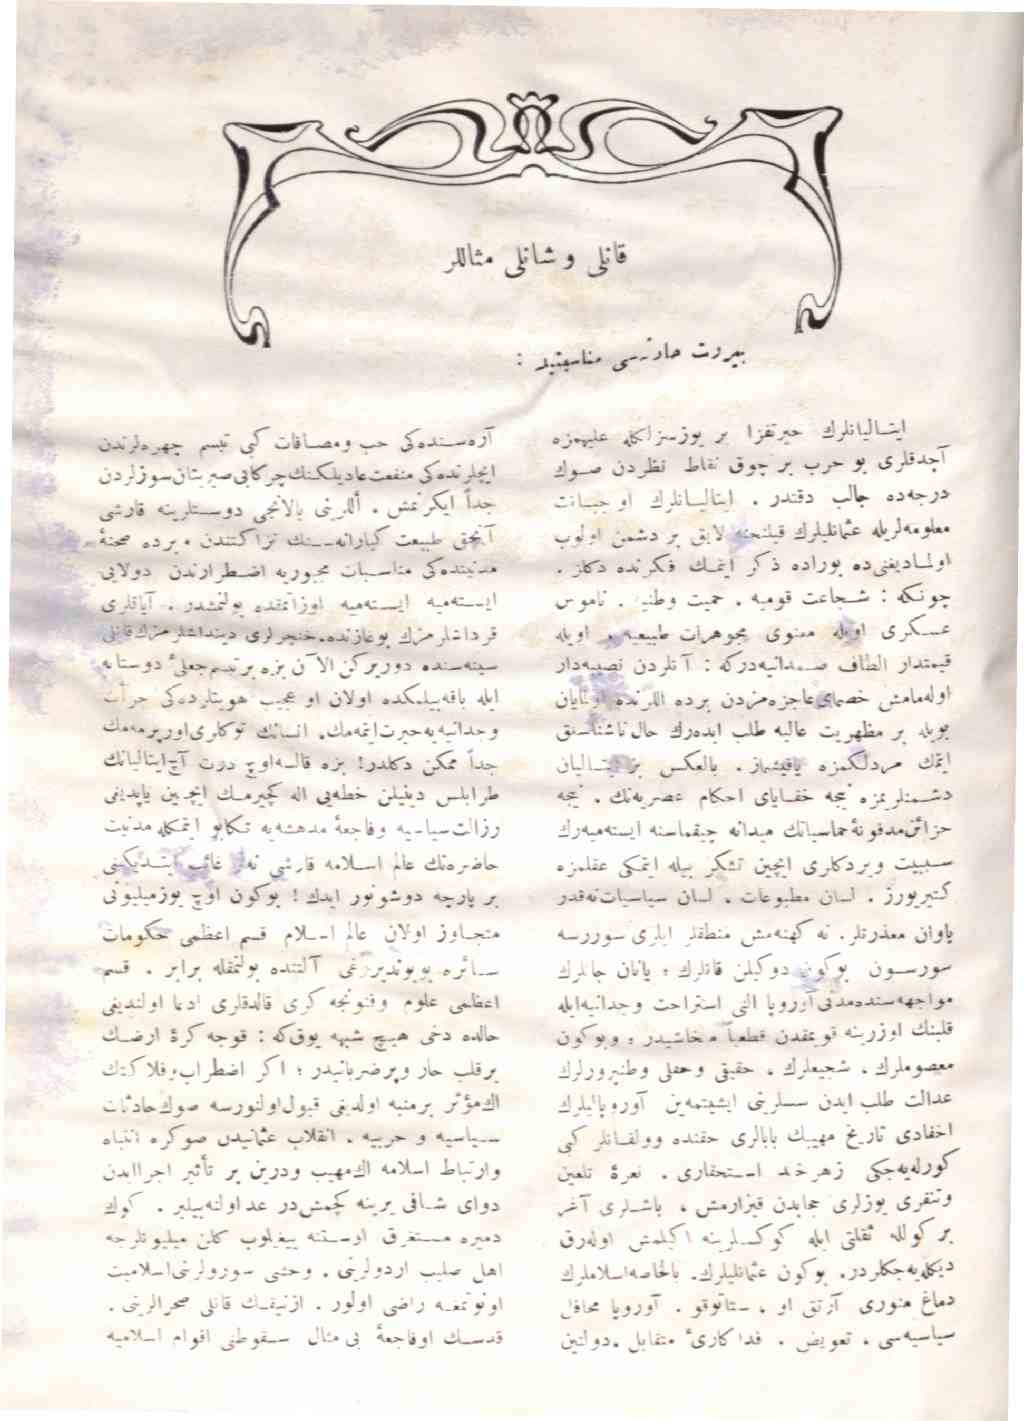 قانلی و شانلی مثاللر
بیروت حادثه‌سی مناسبتیله :
ایتالیانلرك حیرتفزا بر یوزسزلكله علیهمزه
آچدقلری بو حرب بر چوق نقاط نظردن صوك
درجه‌ده جالب دقتدر . ایتالیانلرك او جبانت
معلومه‌لریله عثمانلیلرك قیلنجنه لایق بر دشمن اولوب
اولمادیغنی‌ده بوراده ذكر ایتمك فكرنده دكلز .
چونكه : شجاعت قومیه ، حمیت وطنیه ، ناموس
عسكری اویله معنوی مجوهرات طبیعیه ، اویله
قیمتدار الطاف صمدانیه‌دركه : آنلردن نصیبه‌دار
اوله‌مامش خصمای عاجزه‌مزدن برده اللرنده اولمایان
بویله بر مظهریت عالیه طلب ایده‌رك حال ناشناسلق
ایتمك مردلكمزه یاقیشماز . بالعكس بز ایتالیان
دشمنلریمزه نیجه خفایای احكام عصریه‌نك ، نیجه
خزائن مدفونهٔ حماسیاتك میدانه چیقماسنه ایسته‌میه‌رك
سببیت ویردكلری ایچین تشكر بیله ایتمكی عقلمزه
كتیریورز . لسان مطبوعات ، لسان سیاسیات نه‌قدر
یاوان معذرتلر ، نه كهنه‌مش منطقلر ایلری سوررسه
سورسون بوكون دوكیلن قانلرك ، یانان جانلرك
مواجهه‌سنده مدنی آوروپا النی استراحت وجدانیه‌ایله
قلبنك اوزرینه قویمقدن قطعیاً متحاشیدر ، وبوكون
معصوملرك ، شجیعلرك ، حقیقی وحقلی وطنپرورلرك
عدالت طلب ایدن سسلرینی ایشیتمه‌ین آوروپالیلرك
احفادی تاریخ مهیبك بابالری حقنده وولقانلر كبی
كورله‌یه‌جكی زهرخند استحقاری ، نعرهٔ تلعین
وتنفری یوزلری حجابدن قیزارمش ، باشلری آغر
بر كولله ثقلتی ایله كوكسلرینه اكیلمش اوله‌رق
دیكله‌یه‌جكلردر. بوكون عثمانلیلرك، بالخاصه اسلاملرك
دماغ منوری آرتق او ، ستاتوقو . آوروپا محافل
سیاسیه‌سی ، تعویض ، فداكارئ متقابل ، دولتین
آره‌سنده‌كی حب ومصافات كبی تبسم چهره‌لرندن
ایچلرنده‌كی منفعت عادیلكنك چركابی صیریتان سوزلردن
جداً ایكرنمش . أللرینی یالانجی دوستلرینه قارشی
آنجق طبیعت كبارانه‌سنك نزاكتندن و برده صحنهٔ
مدنیتده‌كی مناسبات مجبوریه اضطرارندن دولایی
ایسته‌میه ایسته‌میه اوزاتمقده بولنمشدر . آیاقلری
قرداشلرمزك بوغازنده، خنجرلری دینداشلرمزك قانلی
سینه‌سنده دورركن الآن بزه برتبسم جعلئ دوستانه
ایله باقه‌بیلمكده اولان او عجیب هویتلرده‌كی جرأت
وجدانیه‌یه حیرت ایتمه‌مك، انسانك توكلری اورپرمه‌مك
جداً ممكن دكلدر! بزه قالسه اوچ دورت آچ ایتالیانك
طرابلس دینیلن خطه‌یی اله كچیرمك ایچین یاپدیغی
رزالت سیاسیه وفاجعهٔ مدهشه‌یه تكاپو ایتمكله مدنیت
حاضره‌نك عالم اسلامه قارشی نه‌لر غائب ایتدیكینی
بر پارچه دوشونور ایدك ! بوكون اوچ یوزمیلیونی
متجاوز اولان عالم اسلام قسم اعظمی حكومات
سائره بویوندیریغی آلتنده بولنمقله برابر ، قسم
اعظمی علوم وفنونجه كری قالدقلری ادعا اولندیغی
حالده دخی هیچ شبهه یوق‌كه : قوجه كرهٔ ارضك
برقلب حار وپرضربانیدر ؛ اكر اضطراب وفلاكتك
اك مؤثر برمنبه اولدیغی قبول اولنورسه صوك حادثات
سیاسیه و حربیه ، انقلاب عثمانیدن صوكره انتباه
وارتباط اسلامه اك مهیب ودرین بر تأثیر اجرا ایدن
دوای شافی یرینه كچمش‌در عد اولنه‌بیلیر . كوك
دمیره مستغرق اوستنه ییغیلوب كلن میلیونلرجه
اهل صلیب اردولرینی ، وحشی سورولرینی اسلامیت
اونوتمغه راضی اولور . ازنیقك قانلی صحرالرینی ،
قدسك اوفاجعهٔ بی مثال سقوطنی اقوام اسلامیه